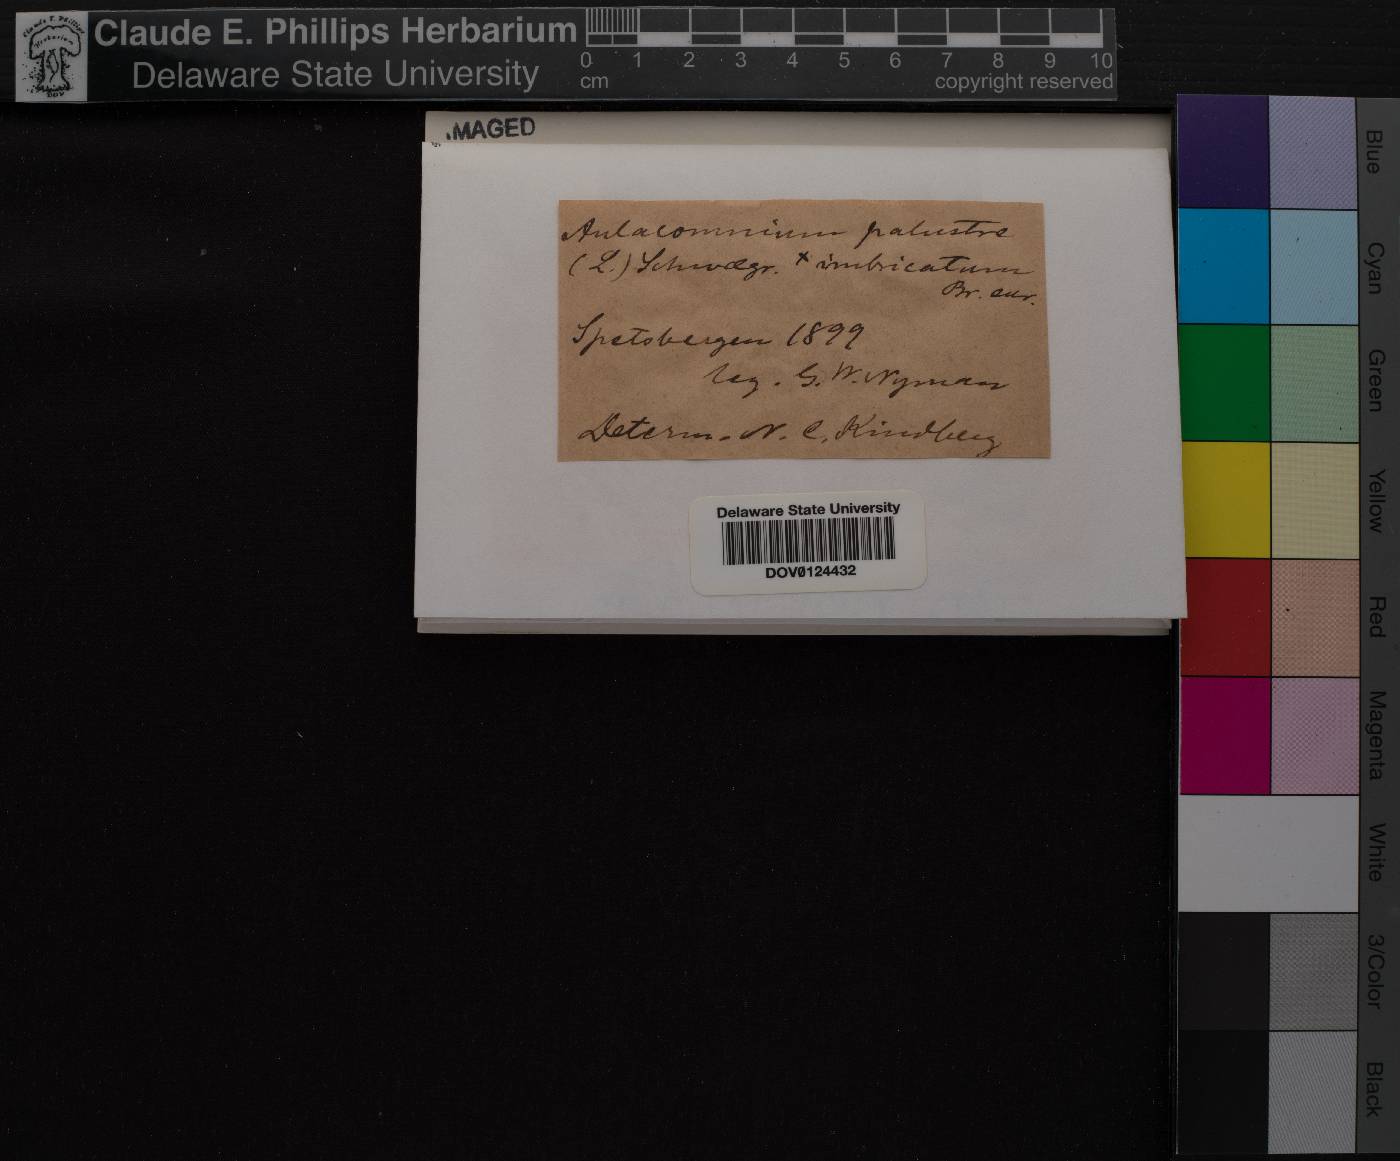 Claude E. Phillips Herbarium
Delaware State University
0 1 2 3 4 5 6 7 8 9 10
cm copyright reserved
IMAGED
Aulacomnium palustre
(L.) Schwægr. × imbricatum
Br. eur.
Spetsbergen 1899
leg. G. W. Nyman
Determ. N. C. Kindberg
Delaware State University
DOV0124432
Blue
Cyan
Green
Yellow
Red
Magenta
White
3/Color
Black